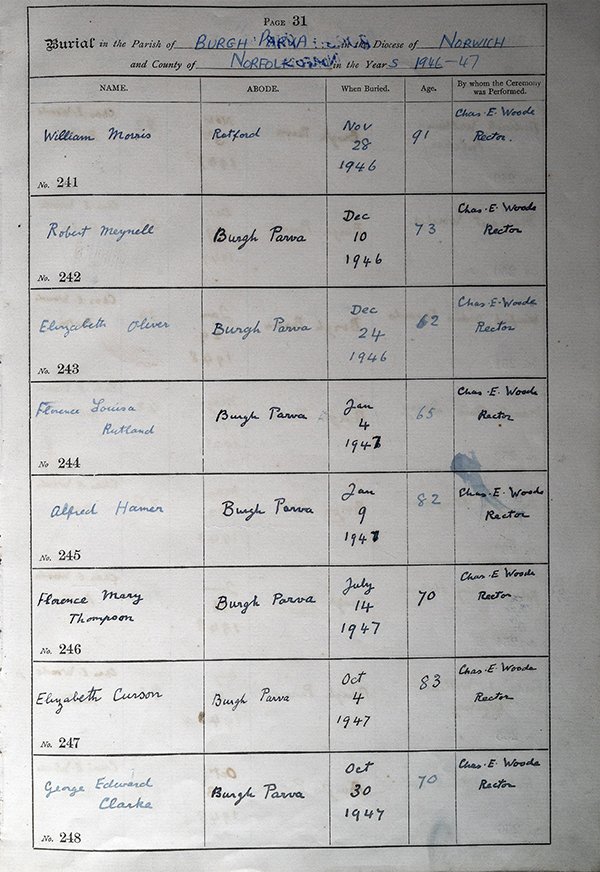 PAGE 31
Burial in the Parish of BURGH PARVA in the Diocese of NORWICH
and County of NORFOLK in the Years 1946-47
NAME. ABODE. When Buried. Age. By whom the Ceremony was Performed.
William Morris
No. 241
Retford
Nov
28
1946
91
Chas. E. Woode
Rector.
Robert Meynell
No. 242
Burgh Parva
Dec
10
1946
73
Chas. E. Woode
Rector
Elizabeth Oliver
No. 243
Burgh Parva
Dec
24
1946
62
Chas. E. Woode
Rector
Florence Louisa
Rutland
No 244
Burgh Parva
Jan
4
1947
65
Chas. E. Woode
Rector
Alfred Hamer
No. 245
Burgh Parva
Jan
9
1947
82
Chas. E. Woode
Rector
Florence Mary
Thompson
No. 246
Burgh Parva
July
14
1947
70
Chas. E. Woode
Rector
Elizabeth Curson
No. 247
Burgh Parva
Oct
4
1947
83
Chas. E. Woode
Rector
George Edward
Clarke
No. 248
Burgh Parva
Oct
30
1947
70
Chas. E. Woode
Rector